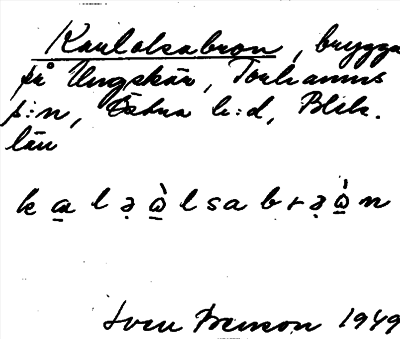 Karlalsabron, brygga
på Ungskär, Torhamns
s:n, Östra h:d, Blek.
län
k a l ə ὼ l s a b r ə ὼ n
Sven Benson 1949